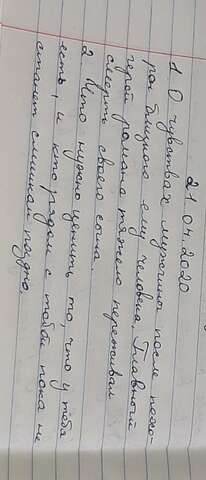 21.04.2020
1. О чувствах мужчины после похо-
рон близкого ему человека. Главный
герой романа тяжело переживал
смерть своего сына.
2. Что нужно ценить то, что у тебя
есть, и кто рядом с тобой пока не
станет слишком поздно.